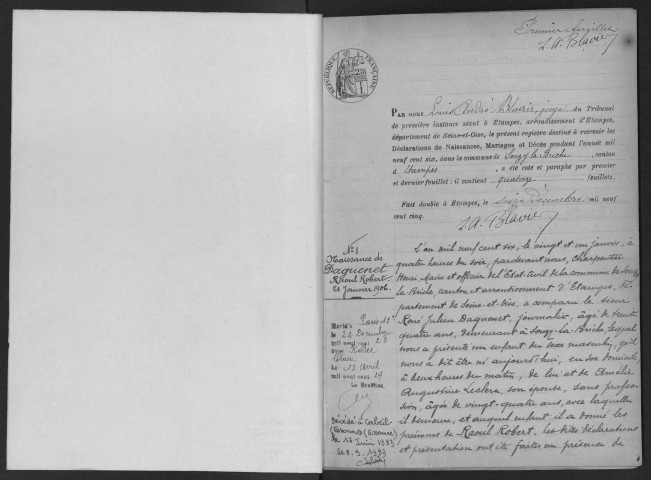 Premier feuillet
L.A. Blavier
RÉPUBLIQUE FRANÇAISE
PAR NOUS Louis André Blavier, juge du Tribunal
de première instance séant à Etampes, arrondissement d'Etampes,
département de Seine-et-Oise, le présent registre destiné à recevoir les
Déclarations de Naissances, Mariages et Décès pendant l'année mil
neuf cent six, dans la commune de Souzy la Briche, canton
d'Etampes, a été coté et paraphé par premier
et dernier feuillet; il contient quatorze feuillets.
Fait double à Etampes, le seize Décembre mil neuf
cent cinq.
L.A. Blavier
N° 1
Naissance de
Daguenet
Raoul Robert
21 Janvier 1906.
Marié à Paris 12e
le 22 Décembre
mil neuf cent 28
avec
le 13 Avril
mil neuf cent 29
Le Greffier
Décédé à Corbeil
Essonnes (Essonne)
le 17 Juin 1983
le 8.9.1983
L'an mil neuf cent six, le vingt et un janvier, à
quatre heures du soir, pardevant nous, Charpentier
Henri, Maire et officier de l'Etat-Civil de la commune de Souzy
la Briche, canton et arrondissement d'Etampes, dé-
partement de Seine-et-Oise, a comparu le sieur
René Julien Daguenet, journalier, âgé de trente
quatre ans, demeurant à Souzy-la-Briche, lequel
nous a présenté un enfant du sexe masculin, qu'il
nous a dit être né aujourd'hui, en son domicile
à deux heures du matin, de lui et de Amélie
Augustine Leclerc, son épouse, sans profes-
sion, âgée de vingt-quatre ans, avec laquelle
il demeure, et auquel enfant, il a donné les
prénoms de Raoul Robert, les dites déclarations
et présentation ont été faites en présence de